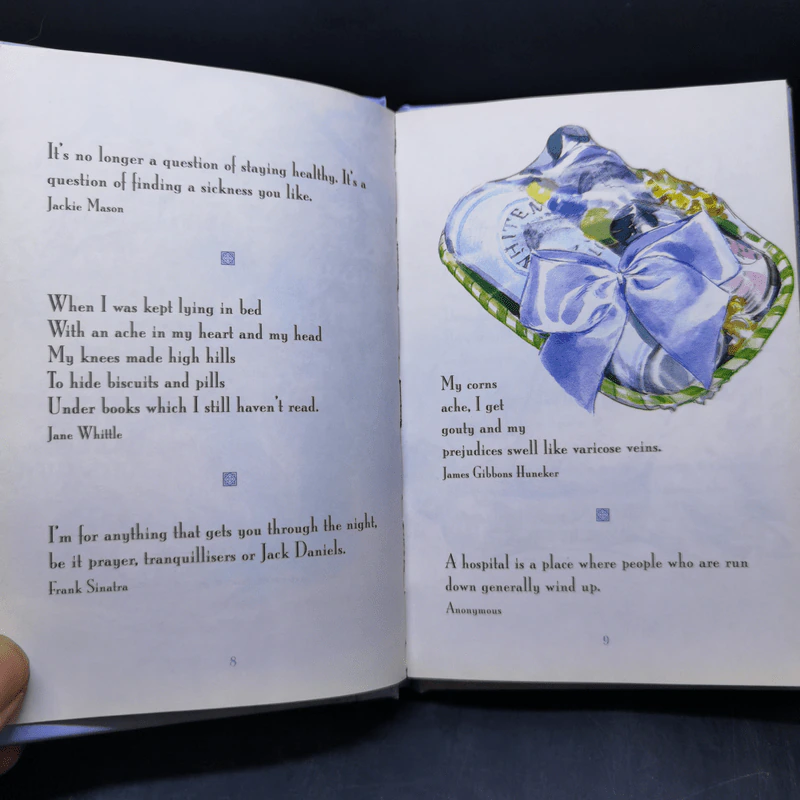 It's no longer a question of staying healthy. It's a
question of finding a sickness you like.
Jackie Mason
When I was kept lying in bed
With an ache in my heart and my head
My knees made high hills
To hide biscuits and pills
Under books which I still haven't read.
Jane Whittle
I'm for anything that gets you through the night,
be it prayer, tranquillisers or Jack Daniels.
Frank Sinatra
8
My corns
ache, I get
gouty and my
prejudices swell like varicose veins.
James Gibbons Huneker
A hospital is a place where people who are run
down generally wind up.
Anonymous
9